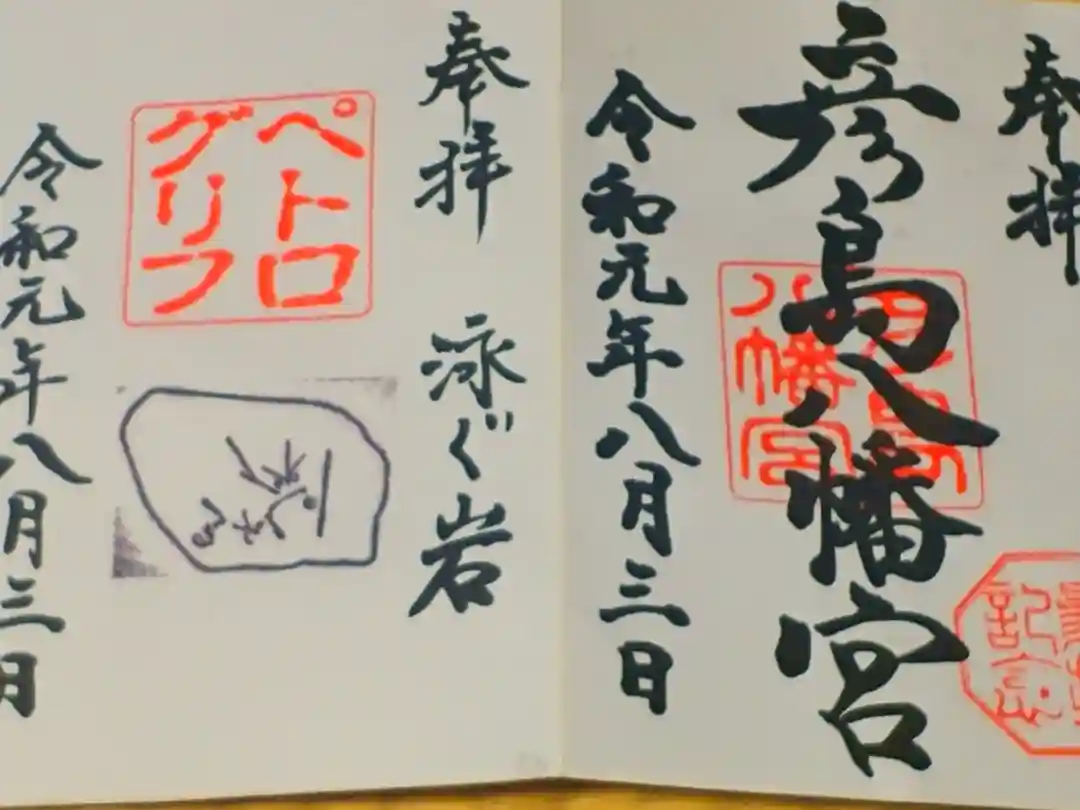 奉拝
彦島八幡宮
令和元年八月三日
奉拝 泳ぐ岩
ペトロ
グリフ
令和元年八月三日